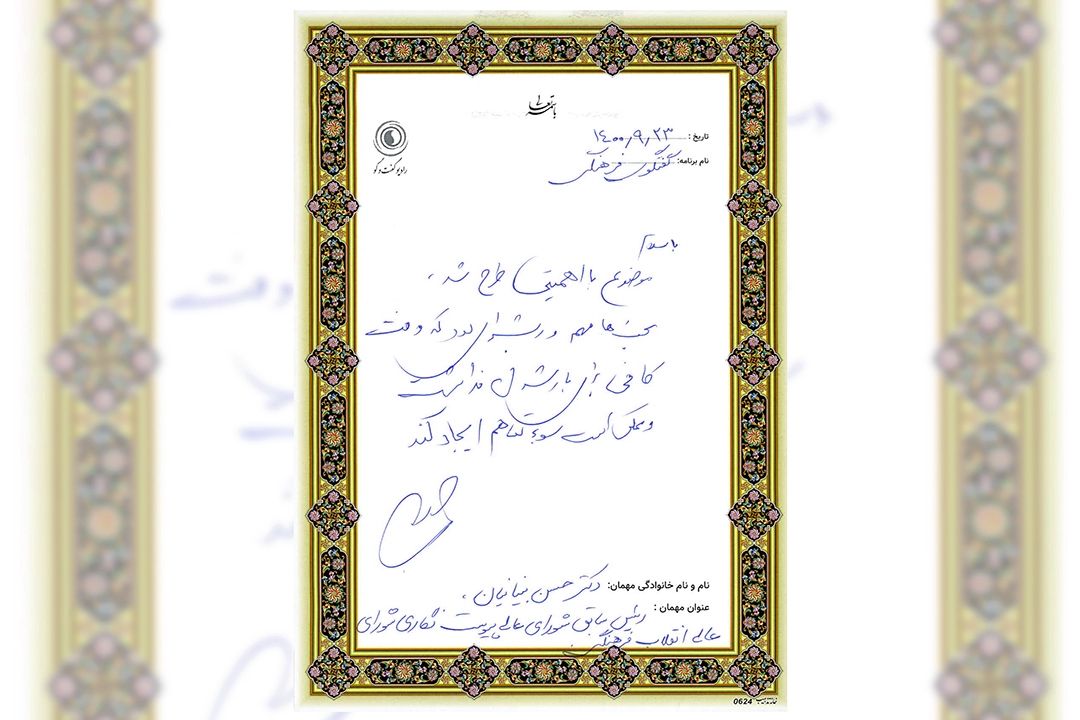 باسمه تعالی
رادیو گفت و گو
تاریخ: ۱۴۰۰/۹/۲۳
نام برنامه: گفتگوی فرهنگی
با سلام
موضوع با اهمیتی طرح شد،
بحث‌ها مهم و ریشه‌ای بود که وقت
کافی برای باز شدن نداشت
و ممکن است سوء تفاهم ایجاد کند
نام و نام خانوادگی مهمان: دکتر حسن بنیانیان،
عنوان مهمان: رئیس سابق شورای عالی پیوست نگاری شورای
عالی انقلاب فرهنگی
0624